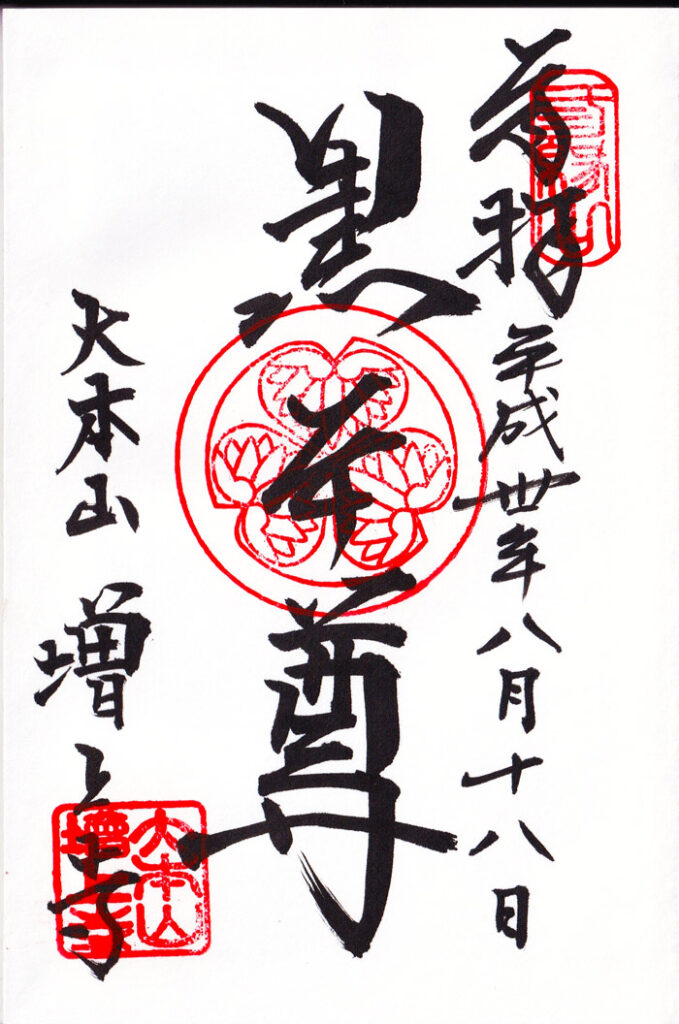 拝
平成丗年八月十八日
黒本尊
大本山 増上寺
大本山
增上寺